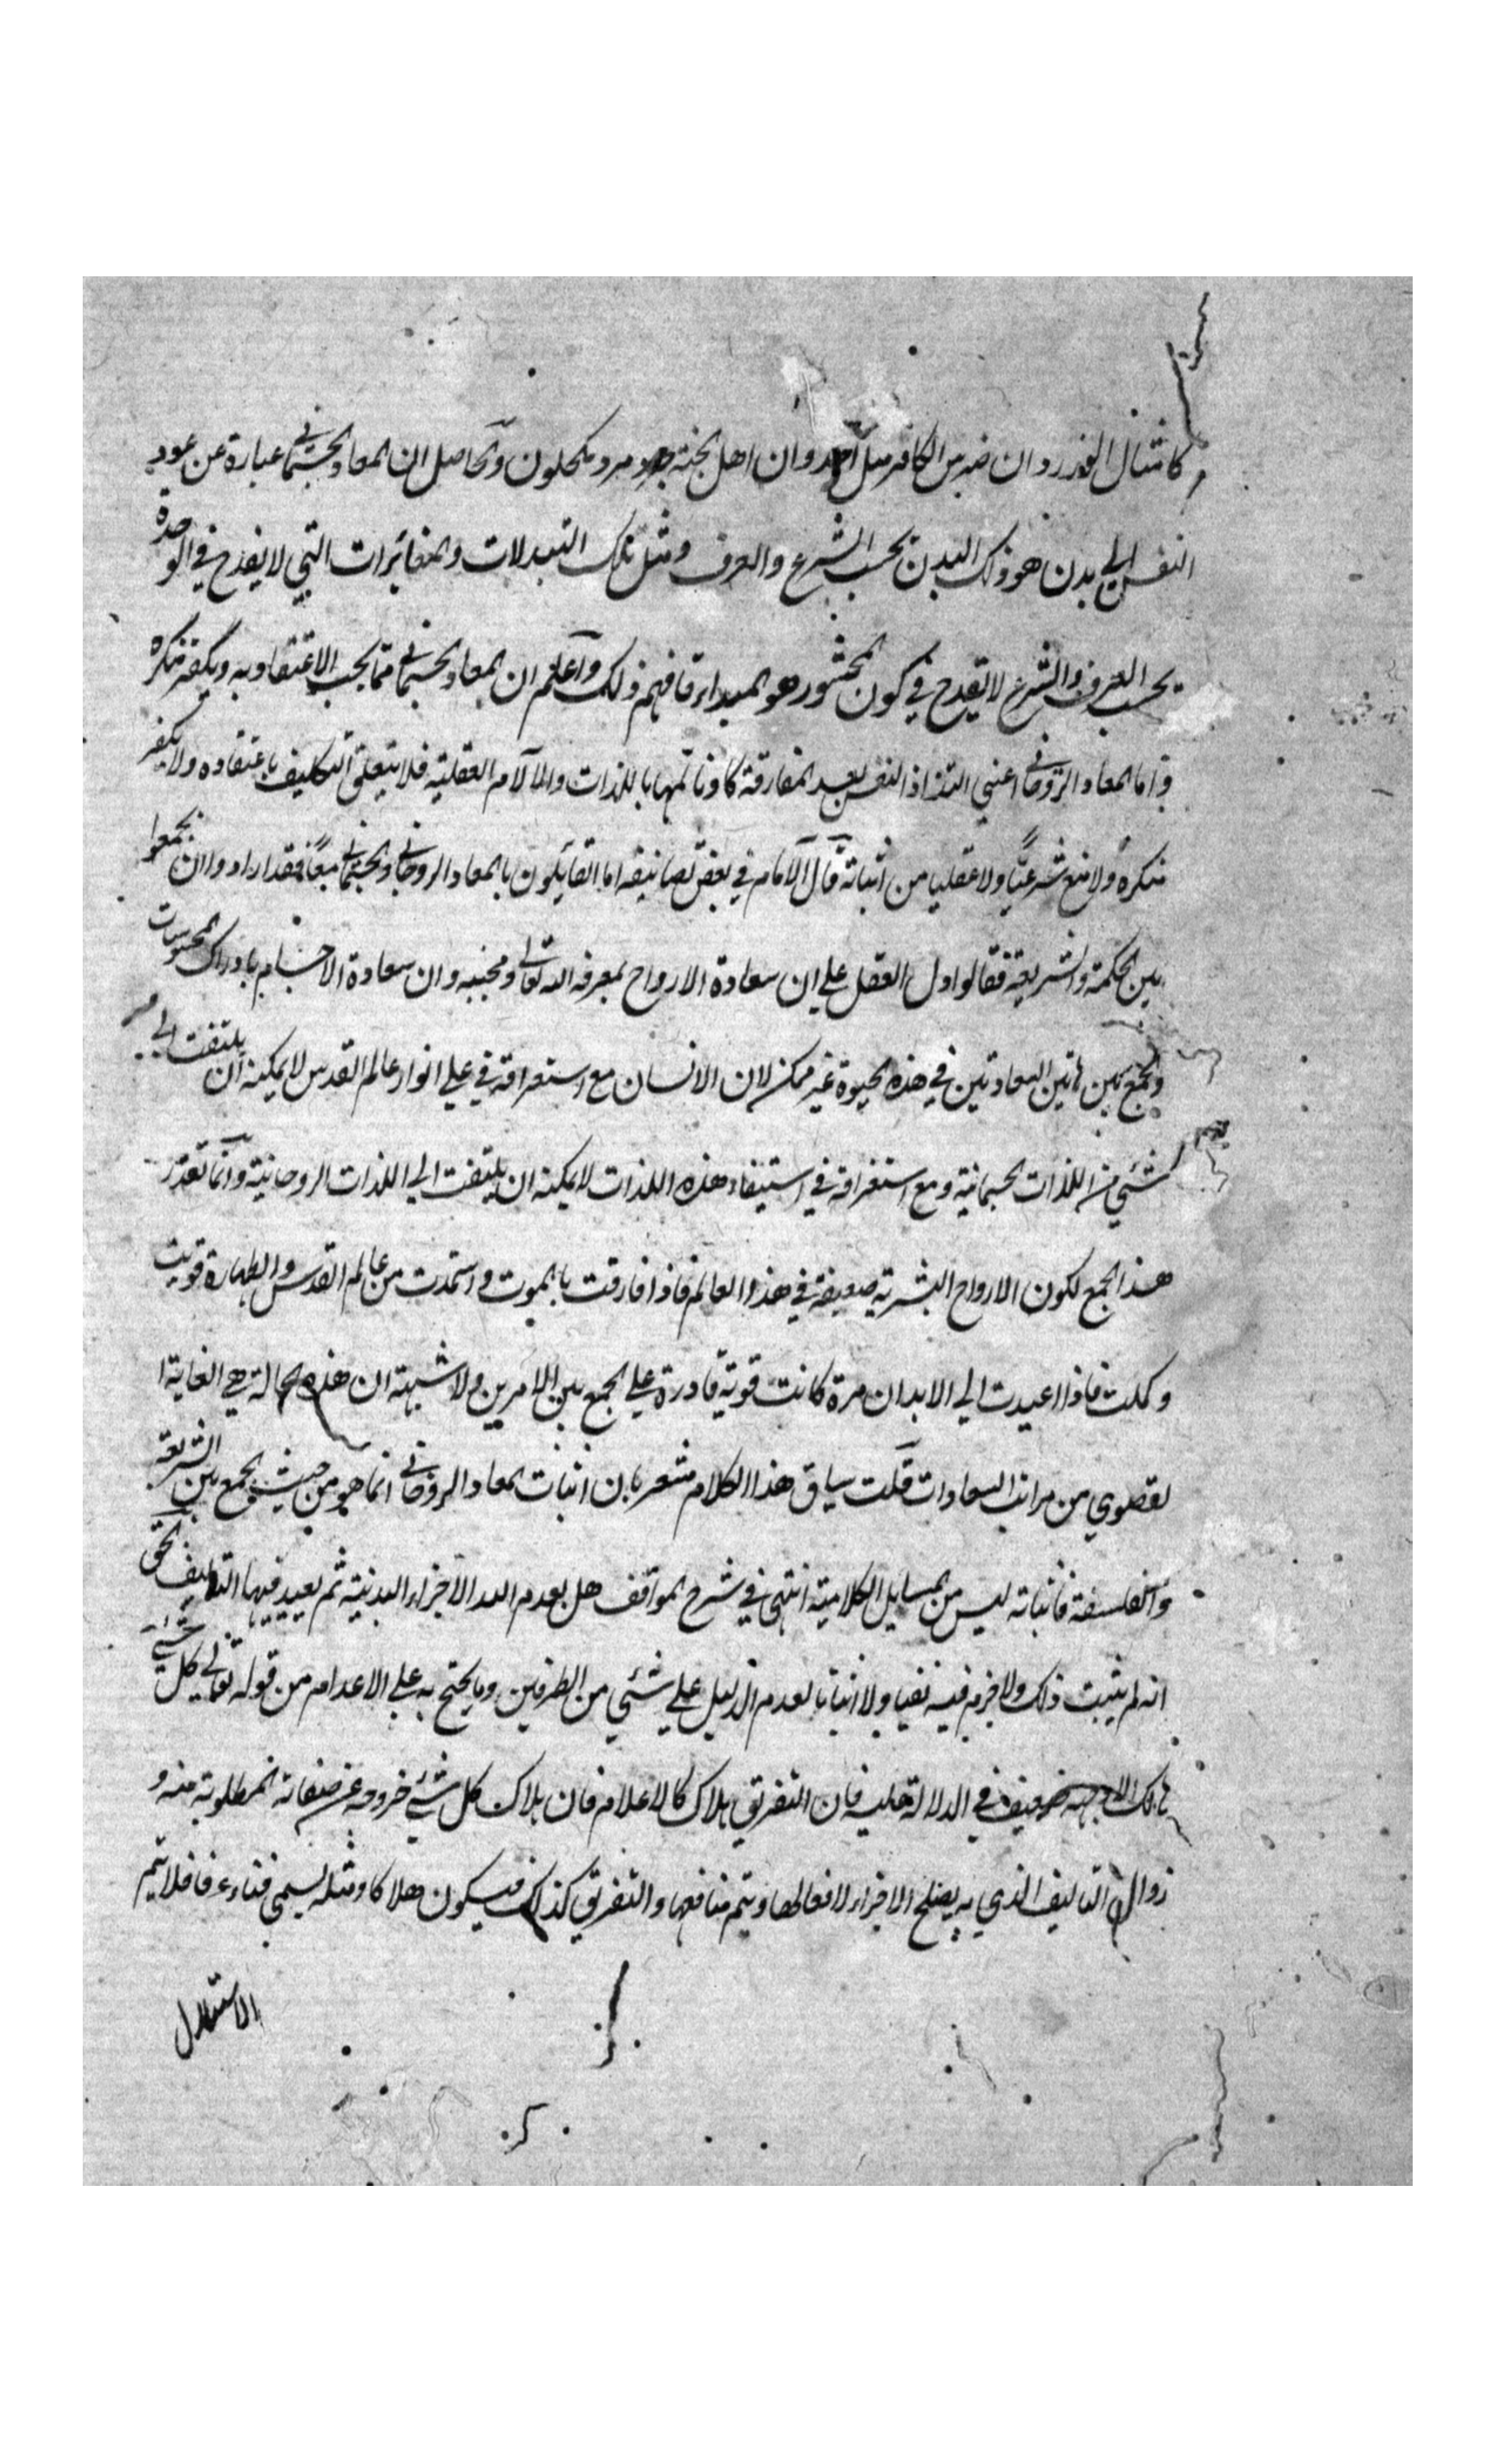 كامثال الذر وان ضرس الكافر مثل احد وان اهل الجنة جرد مرد مكحلون والحاصل ان المعاد الجسماني عبارة عن عود
النفس الي بدن هو ذلك البدن بحسب الشرع والعرف ومثل تلك التبدلات والمغايرات التي لا يقدح في الوحدة
بحسب العرف والشرع لا تقدح في كون المحشور هو المبدا فافهم ذلك واعلم ان المعاد الجسماني مما يجب الاعتقاد به ويكفر منكره
واما المعاد الروحاني اعني التذاذ النفس بعد المفارقة وتالمها باللذات والالآم العقلية فلا يتعلق التكليف باعتقاده ولا يكفر
منكره ولا منع شرعيا ولا عقليا من اثباته قال الامام في بعض تصانيفه اما القايلون بالمعاد الروحاني والجسماني معا فقد ارادوا ان يجمعوا
بين الحكمة والشريعة فقالوا دل العقل علي ان سعادة الارواح بمعرفة الله تعالي ومحبته وان سعادة الاجسام بادراك المحسوسات
والجمع بين هاتين السعادتين في هذه الحيوة غير ممكن لان الانسان مع استغراقه في تجلي انوار عالم القدس لا يمكنه ان يلتفت الي
شئي من اللذات الجسمانية ومع استغراقه في استيفاء هذه اللذات لا يمكنه ان يلتفت الي اللذات الروحانية وانما تعذر
هذا الجمع لكون الارواح البشرية ضعيفة في هذا العالم فاذا فارقت بالموت واستمدت من عالم القدس والطهارة قويت
وكملت فاذا اعيدت الي الابدان مرة كانت قوية قادرة علي الجمع بين الامرين ولا شبهة ان هذه الحالة هي الغاية ا
لقصوي من مراتب السعادات قلت سياق هذا الكلام مشعر بان اثبات المعاد الروحاني انما هو من حيث الجمع بين الشريعة
والفلسفة فاثباته ليس من المسايل الكلامية انتهي في شرح المواقف هل يعدم الله الاجزاء البدنية ثم يعيد فيها التاليف الحق
انه لم يثبت ذلك ولا جزم فيه نفيا ولا اثباتا لعدم الدليل علي شئي من الطرفين وما يحتج به علي الاعدام من قوله تعالي كل شئي
هالك الا وجهه ضعيف في الدلالة عليه فان التفريق هلاك كالاعلام فان هلاك كل شئي خروجه عن صفاته المطلوبة منه و
زوال التاليف الذي به يصلح الاجزاء لافعالها ويتم منافعها والتفريق كذلك فيكون هلاكا ومثله يسمي فناء عرفا فلا يتم
الاستدلال